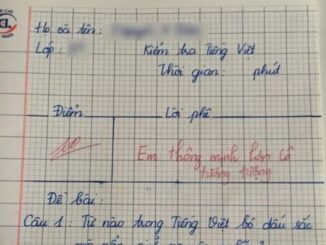 Họ và tên:
Lớp: Kiểm tra Tiếng Việt
Thời gian phút
Điểm Lời phê
Em thông minh hơn cô
tưởng tượng
Đề bài:
Câu 1: Từ nào trong Tiếng Việt bỏ dấu sắc